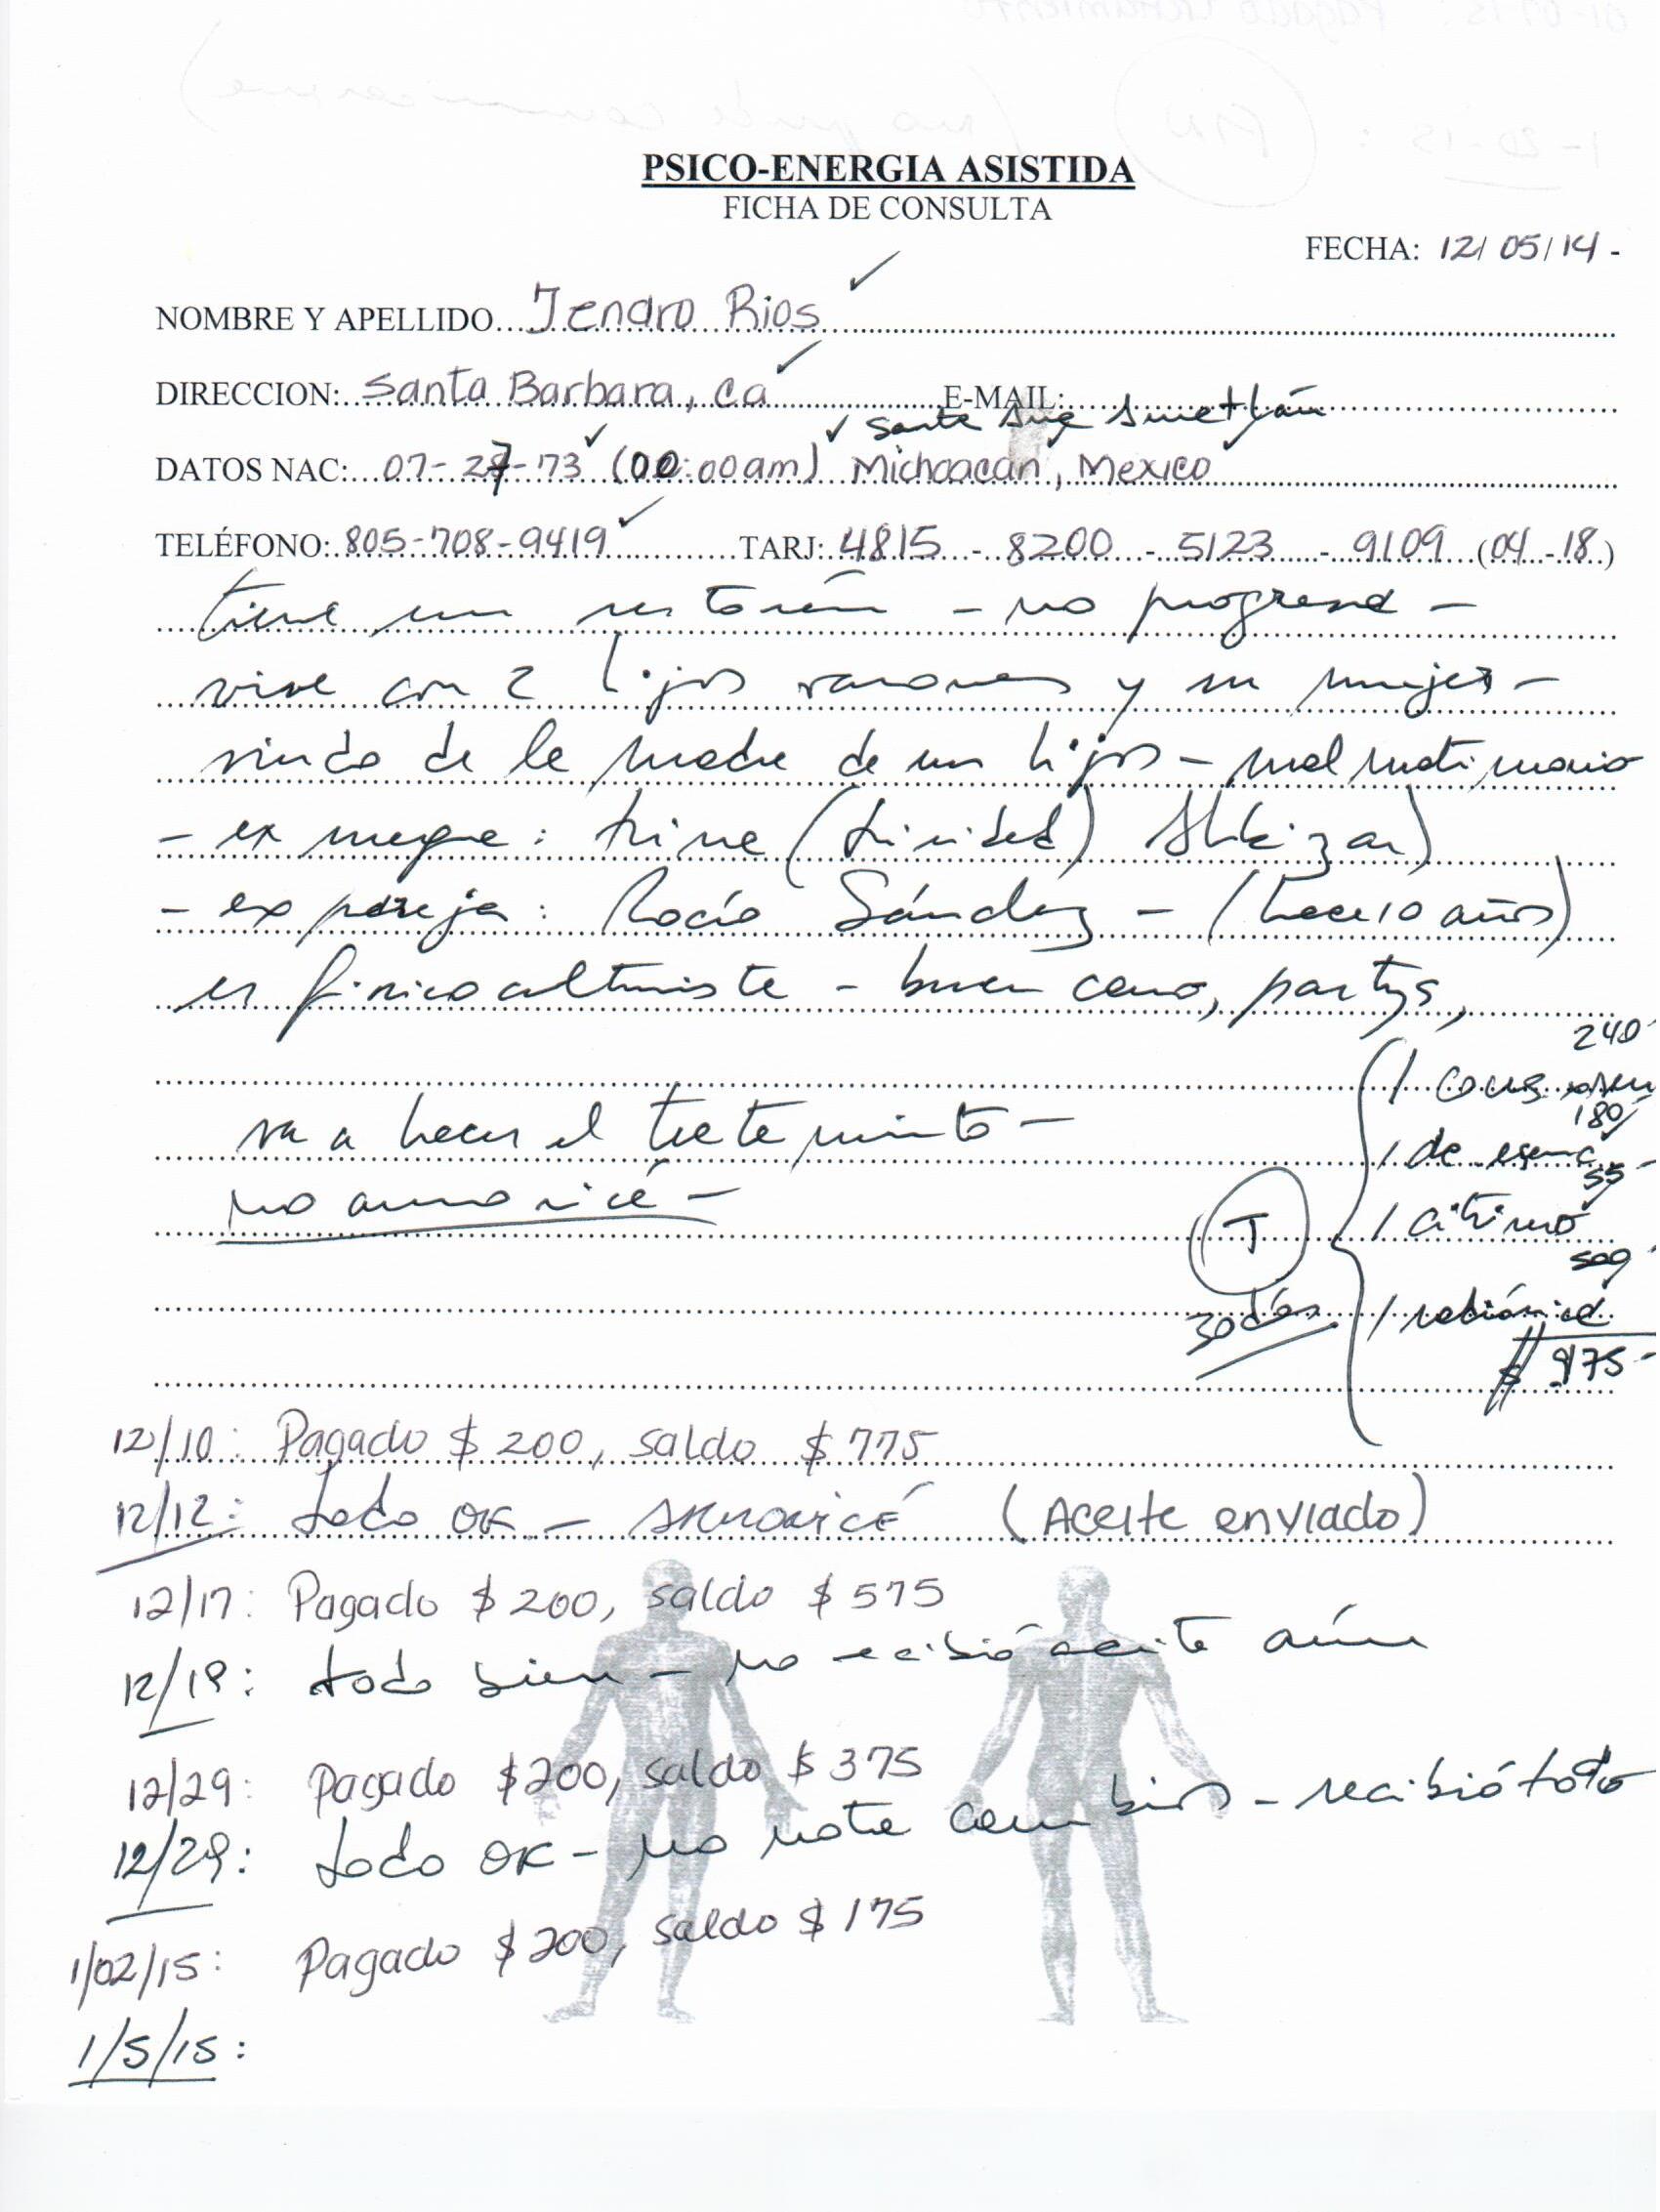 PSICO-ENERGIA ASISTIDA
FICHA DE CONSULTA
FECHA: 12/05/14 -
NOMBRE Y APELLIDO Jenaro Rios
DIRECCION: Santa Barbara, ca E-MAIL:
DATOS NAC: 07-27-73 (00:00am) Michoacan, Mexico
TELÉFONO: 805-708-9419 TARJ: 4815 - 8200 - 5123 - 9109 (04-18)
tiene un restorán - no progresa -
vive con 2 hijos varones y su mujer -
viudo de la madre de sus hijos - mal matrimonio
- ex suegra: trine (trinidad)
- ex pareja: Rocío Sánchez - (hace 10 años)
es fisicoculturista - buen carro, partys,
240
1 cons
180
va a hacer el tratamiento -
1 de esenc
55 -
no armonicé -
T
1 citrino
500 -
30 días
1 radiónica
$ 975 -
12/10: Pagado $200, saldo $775
12/12: todo OK - armonicé (Aceite enviado)
12/17: Pagado $200, saldo $575
12/19: todo bien - no recibió aceite aún
12/29: Pagado $200, saldo $375
12/29: todo OK - no nota cambios - recibió todo
1/02/15: Pagado $200, saldo $175
1/5/15: